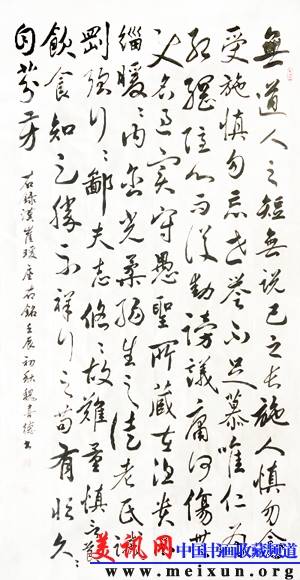 無道人之短無說己之長施人慎勿念
受施慎勿忘世譽不足慕唯仁為
紀綱隱心而後動謗議庸何傷無
使名過實守愚聖所臧在涅貴不
緇曖〻內含光柔弱生之徒老氏誡
剛強行〻鄙夫志悠〻故難量慎言節
飲食知足勝不祥行之苟有恒久〻
自芬芳
右錄漢崔瑗座右銘壬辰初秋魏書
美讯网
中国书画收藏频道
www.meixun.org